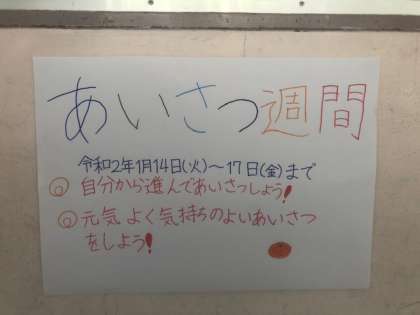 あいさつ週間
令和2年1月14日(火)～17日(金)まで
◎自分から進んであいさつしよう!
◎元気よく気持ちのよいあいさつ
をしよう!